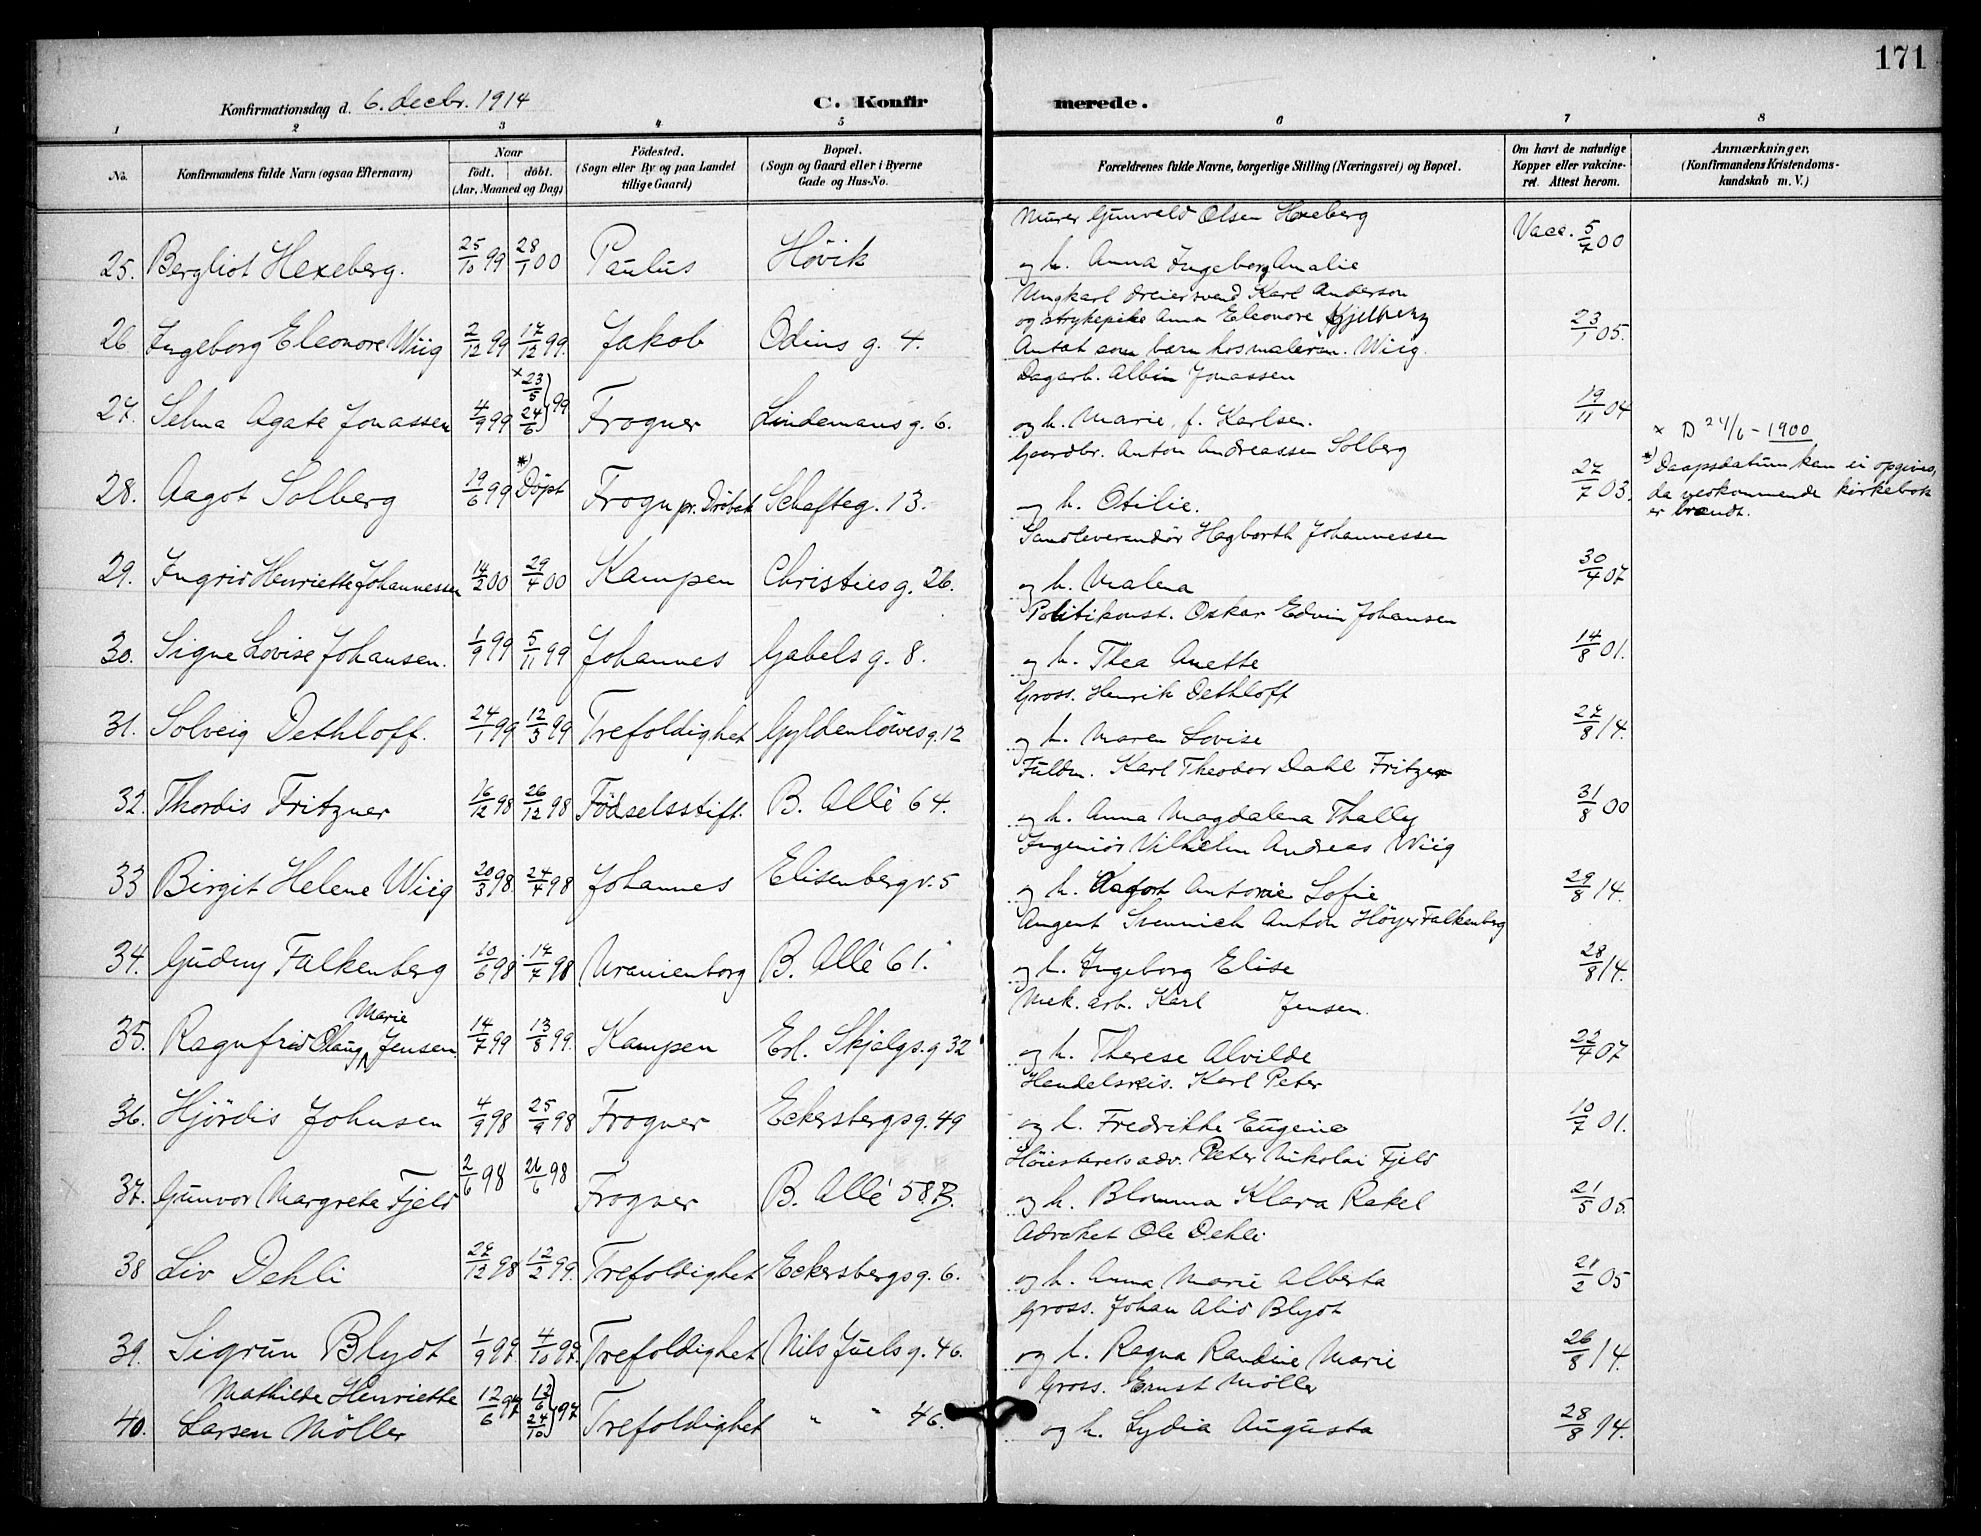 171
Konfirmationsdag d. 6. decbr. 1914
C. Konfirmerede.
1 2 3 4 5 6 7 8
No.
Konfirmandens fulde Navn (ogsaa Efternavn)
Naar
født. døbt.
(Aar, Maaned og Dag)
Fødested.
(Sogn eller By og paa Landet
tillige Gaard)
Bopæl.
(Sogn og Gaard eller i Byerne
Gade og Hus-No.
Forældrenes fulde Navne, borgerlige Stilling (Næringsvei) og Bopæl.
Om havt de naturlige
Kopper eller vakcine-
ret. Attest herom.
Anmærkninger.
(Konfirmandens Kristendoms-
kundskab m. V.)
Murer Gunvald Olsen Hexeberg
25. Bergliot Hexeberg. 25/10 99 28/1 00 Paulus Høvik og h. Anna Ingeborg Amalie Vacc. 5/7 00
Ungkarl dreiersvend Karl Anderson
og strykepike Anna Eleonore Kjelberg
26 Ingeborg Eleonore Wiig 2/12 99 17/12 99. Jakob Odins g. 4. Antat som barn hos malerm. Wiig. 23/1 05.
Dagarb. Albin Jonassen
27. Selma Agate Jonassen 4/9 99 × 23/5 24/6 } 99 Frogner Lindemans g. 6. og h. Marie, f. Karlsen. 19/11 04
× D 24/6 - 1900
Gaardbr. Anton Andreassen Solberg
28. Aagot Solberg 19/6 99 *) Døpt Frogn pr. Drøbak Schafteg. 13. og h. Otilie. 27/7 03.
*) Daapsdatum kan ei opgives,
da vedkommende kirkebok
er brændt.
Sandleverandør Hagbarth Johannessen
29. Ingrid Henriette Johannessen 14/2 00 29/4 00 Kampen Christies g. 26. og h. Malena 30/4 07
Politikonst. Oskar Edvin Johansen
30. Signe Lovise Johansen. 1/9 99 5/11 99 Johannes Gabels g. 8. og h. Thea Anette 14/8 01.
Gross. Henrik Dethloff
31. Solveig Dethloff. 24/1 99 12/3 99 Trefoldighet Gyldenløves g. 12 og h. Maren Lovise 27/8 14.
Fuldm. Karl Theodor Dahl Fritzner
32. Thordis Fritzner 16/12 98 26/12 98 Fødselsstift. B. Allé 64. og h. Anna Magdalena Thally 31/8 00
Ingeniør Vilhelm Andreas Wiig
33 Birgit Helene Wiig 20/3 98. 24/4 98 Johannes Elisenberg v. 5 og h. Aagot Antonie Sofie 29/8 14.
Angent Svennich Anton Höyer Falkenberg
34. Gudny Falkenberg 10/6 98 17/7 98 Uranienborg B. Allé 61. og h. Ingeborg Elise 28/8 14.
Mek. arb. Karl Jensen.
35. Ragnfrid Olaug Marie Jensen 14/7 99 13/8 99. Kampen Erl. Skjalgs. g 32 og h. Therese Alvilde 22/4 07
Handelsreis. Karl Peter
36. Hjørdis Johnsen 4/9 98 25/9 98 Frogner Eckersbergs g. 49 og h. Fredrikke Eugenie 10/7 01.
Høiesteretsadv. Peter Nikolai Fjeld
37. Gunvor Margrete Fjeld 2/6 98 26/6 98 Frogner B. Allé 58 B. og h. Blomma Klara Rakel 21/5 05.
Advokat Ole Dehli.
38 Liv Dehli 27/12 98 12/2 99. Trefoldighet Eckersbergs g. 6. og h. Anna Marie Alberta 21/2 05
Gross. Johan Alid Blydt
39. Sigrun Blydt 1/9 97 4/10 97. Trefoldighet Nils Juels g. 46. og h. Ragna Randine Marie 26/8 14.
Gross. Ernst Møller
40. Mathilde Henriette
Larsen Møller 12/6 97 12/6 24/10 } 97 Trefoldighet " " 46. og h. Lydia Augusta 28/8 14.